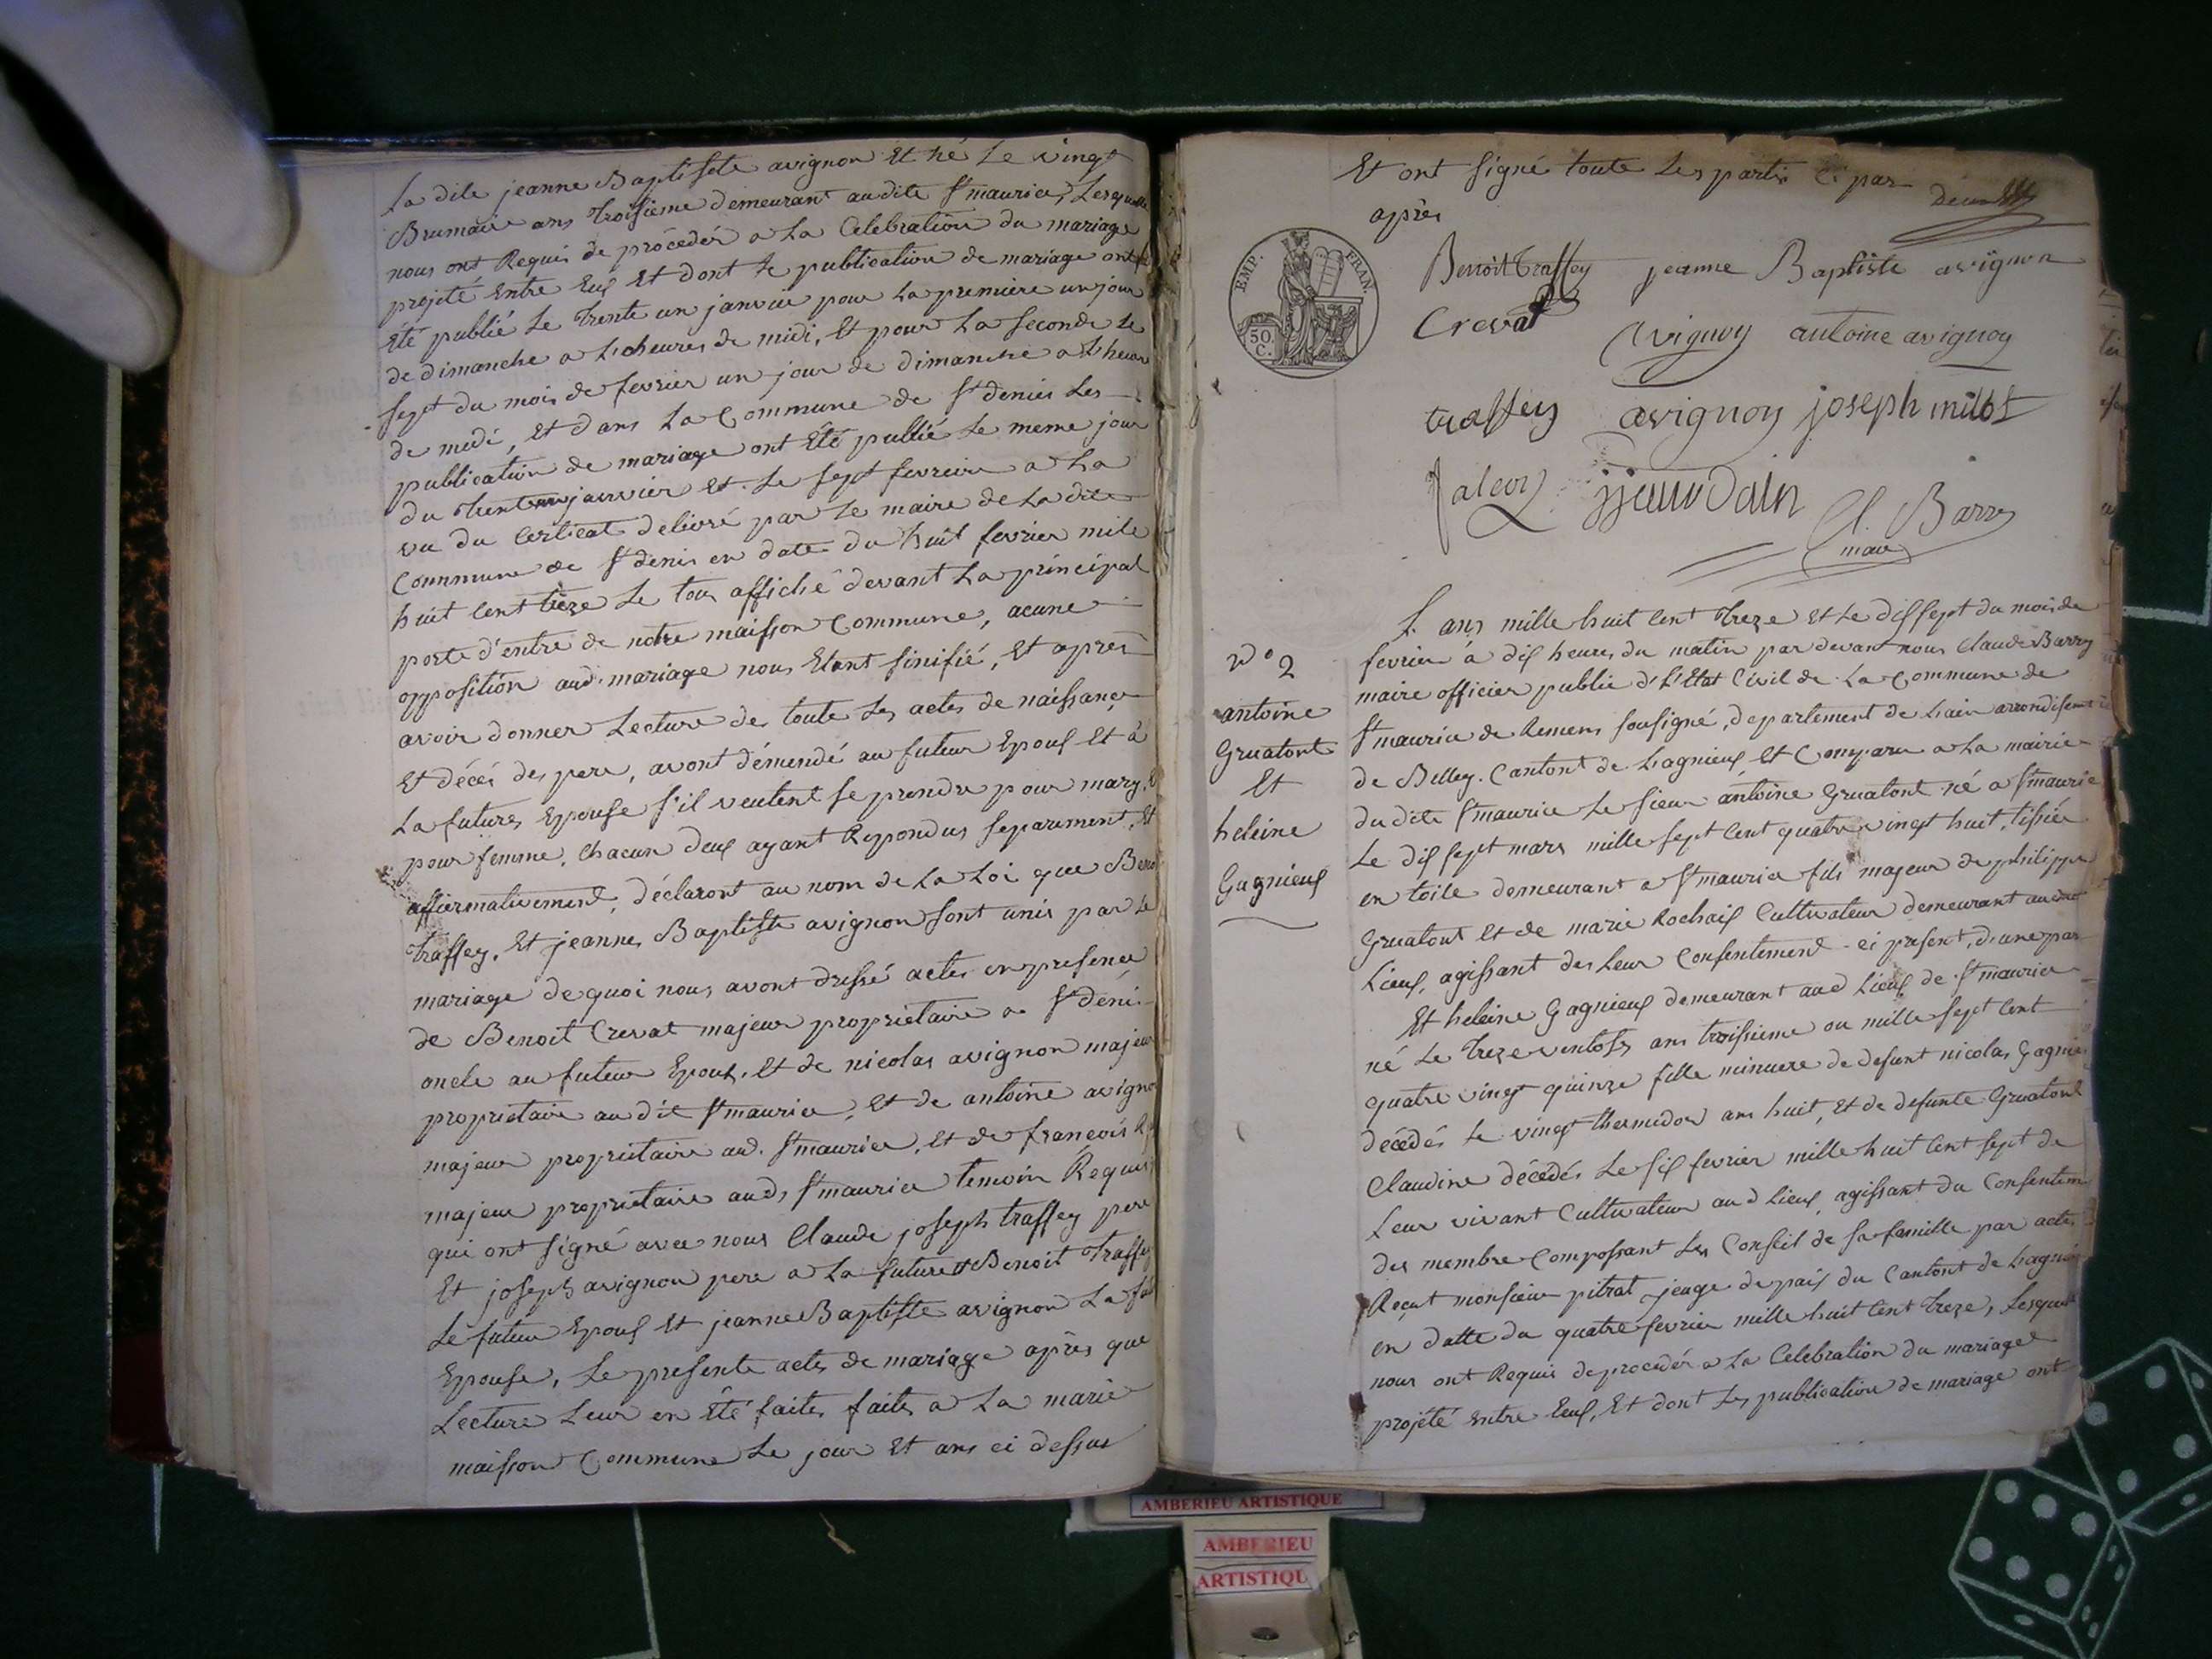 La dite jeanne Baptiste avignon Et né Le vingt
Brumaire ans troisieme demeurant audite St maurice, Lesquelle
nous ont Requis de procéder a La Celebration du mariage
projeté Entre Eux Et dont Le publication de mariage ont
Eté publié Le trente un janvier pour La premiere un jour
de dimanche a L'heures de midi, Et pour La seconde Le
sept du mois de fevrier un jour de dimanche a L'heure
de midi, Et dans La Commune de St denis Les
publication de mariage ont Eté publié Le meme jour
du trente un janvier Et Le sept fevreire a La
vu du Certicat delivré par Le maire de La dite
Commune de St denis en date du huit fevrier mile
huit Cent treze Le tous affiché devant La principal
porte d'entre de notre maisson Commune, acune
opposition aud. mariage nous Etant sinifié, Et apres
avoir donner Lecture de toute Les actes de naissance
Et décés des pere, avont démendé au futeur Epoux Et à
La futures Epouse s'il veulent se prendre pour mary, Et
pour femme, Chacun deux ayant Repondus separement, Et
affiermativement, déclaront au nom de La Loi que Beno
traffey, Et jeanne Baptiste avignon sont unis par Le
mariage de quoi nous avont dressé actes en presence
de Benoit Crevat majeur propriétaire a St déni
oncle au futeur Epoux, Et de nicolas avignon majeur
proprietaire au dit St maurice, Et de antoine avigno
majeur proprietaire aud. St maurice, Et de françois
majeur proprietaire auds St maurice temoin Requis
qui ont signé avec nous Claude joseph traffey pere
Et joseph avignon pere a La future Et Benoit traffey
Le futeur Epoux Et jeanne Baptiste avignon La fu
Epouse, Le presente actes de mariage apres que
Lecture Leur en Eté faites faites a La marie
maisson Commune Le jour Et ans ci dessus
Et ont signé toute Les partis Ci par
après
EMP. FRAN.
50 C.
Benoit traffey jeanne Baptiste avignon
Crevat avignon antoine avignon
traffey avignon joseph millot
Cl. Barry
maire
L'ans mille huit Cent treze Et Le dix sept du mois de
fevrier à dix heures du matin par devant nous Claude Barry
maire officier public d'L'Etat Civil de La Commune de
St maurice de Remens sousigné, departement de Lain arrondisement
de Belley. Cantont de Lagnieux Et Comparu a La mairie
du dite St maurice Le sieur antoine Gruatont né a St maurice
Le dix sept mars mille sept Cent quatre vingt huit, tissier
en toile demeurant a St maurice fils majeur de philippe
Gruatont Et de marie Rochaix Cultivateur demeurant au
Lieux, agissant des Leur Consentement ci present, d'une par
Et heleine Gagnieux demeurant aud Lieux de St maurice
né Le treze ventoss ans troisieme ou mille sept Cent
quatre vingt quinze fille minuere de defunt nicolas Gagnieu
décédés Le vingt thermidor ans huit, Et de defunte Gruatont
Claudine décédés Le six fevrier mille huit Cent sept de
Leur vivant Cultivateur aud Lieux, agissant du Consentem
des membre Compossant Les Conseil de sa famille par actes
Reçut monsieur pitrat jeuge de paix du Cantont de Lagnieu
en datte du quatre fevrier mille huit Cent treze, Lesquelle
nous ont Requis de proceder a La Celebration du mariage
projété Entre Eux, Et dont Les publication de mariage ont
N° 2
antoine
Gruatont
Et
heleine
Gagnieux
AMBERIEU ARTISTIQUE
AMBERIEU
ARTISTIQU